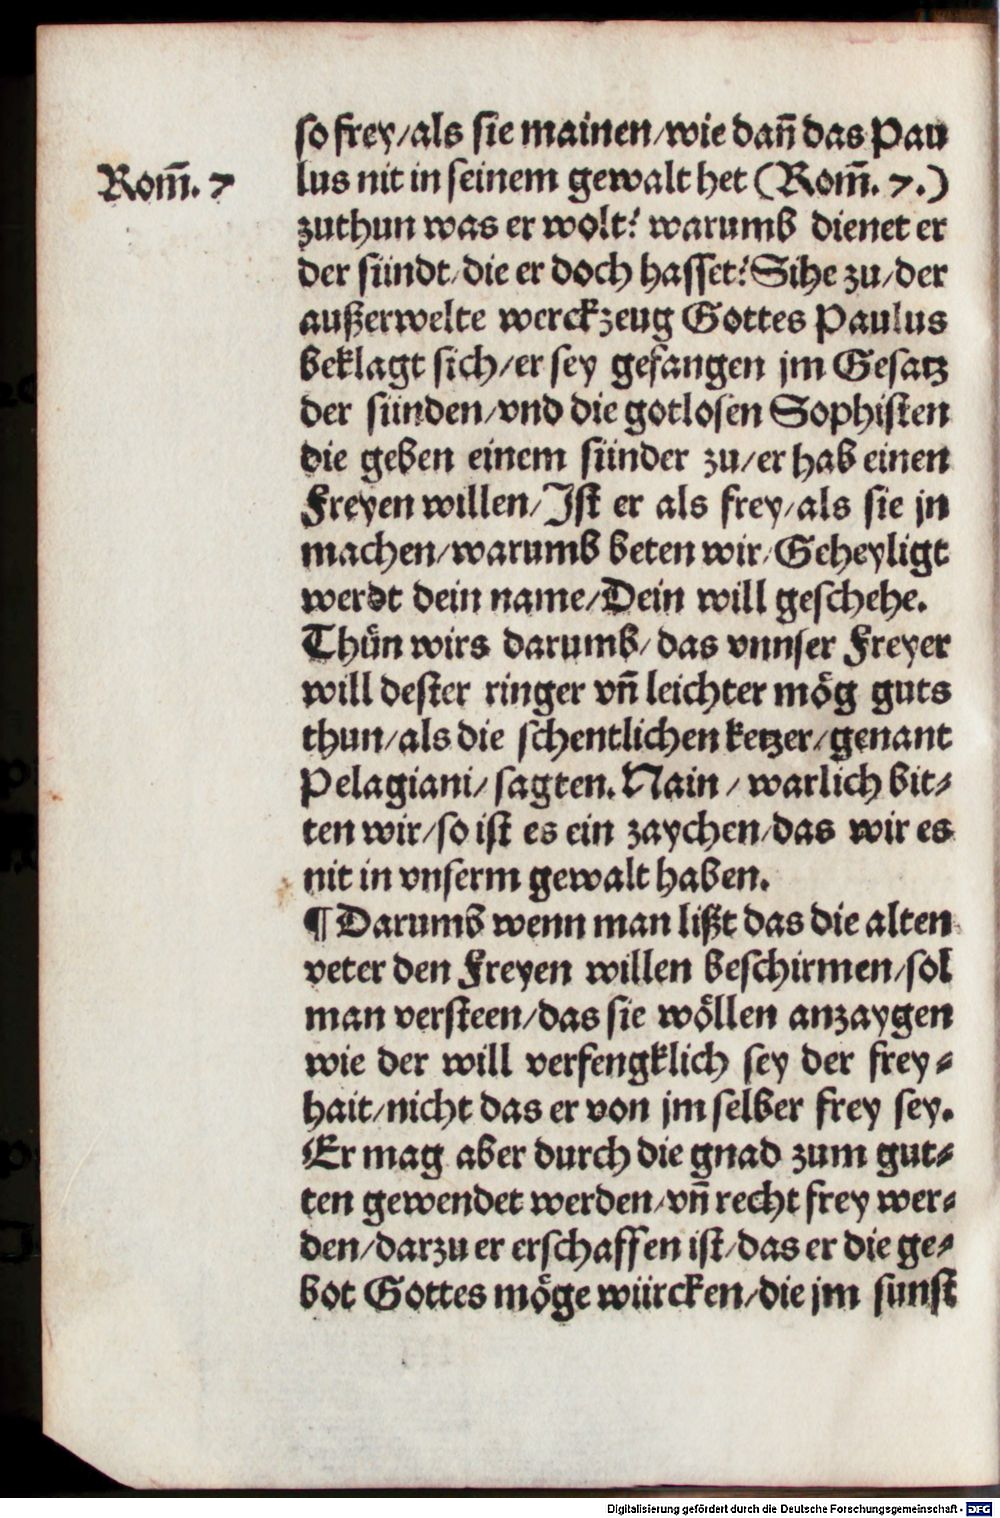 so frey/als sie mainen/wie dañ das Pau
Rom̃. 7
lus nit in seinem gewalt het (Rom̃. 7.)
zuthun was er wolt? warumb dienet er
der sündt/die er doch hasset? Sihe zu/der
außerwelte werckzeug Gottes Paulus
beklagt sich/er sey gefangen jm Gesatz
der sünden/vnd die gotlosen Sophisten
die geben einem sünder zu/er hab einen
Freyen willen/Ist er als frey/als sie jn
machen/warumb beten wir/Geheyligt
werdt dein name/Dein will geschehe.
Thün wirs darumb/das vnnser Freyer
will dester ringer vñ leichter mög guts
thun/als die schentlichen ketzer/genant
Pelagiani/sagten. Nain/warlich bit⸗
ten wir/so ist es ein zaychen/das wir es
nit in vnserm gewalt haben.
¶ Darumb wenn man lißt das die alten
veter den Freyen willen beschirmen/sol
man versteen/das sie wöllen anzaygen
wie der will verfengklich sey der frey⸗
hait/nicht das er von jm selber frey sey.
Er mag aber durch die gnad zum gut⸗
ten gewendet werden/vñ recht frey wer⸗
den/darzu er erschaffen ist/das er die ge⸗
bot Gottes möge würcken/die jm sunst
Digitalisierung gefördert durch die Deutsche Forschungsgemeinschaft - DFG